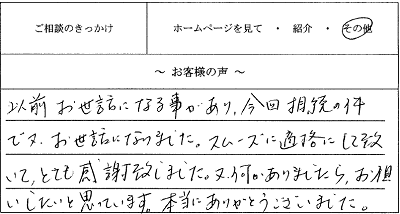 ご相談のきっかけ ホームページを見て ・ 紹介 ・ その他
～ お客様の声 ～
以前お世話になる事があり、今回相続の件
で又、お世話になりました。スムーズに適格にして致
いて、とても感謝致しました。又何かありましたら、お願
いしたいと思っています。本当にありがとうございました。